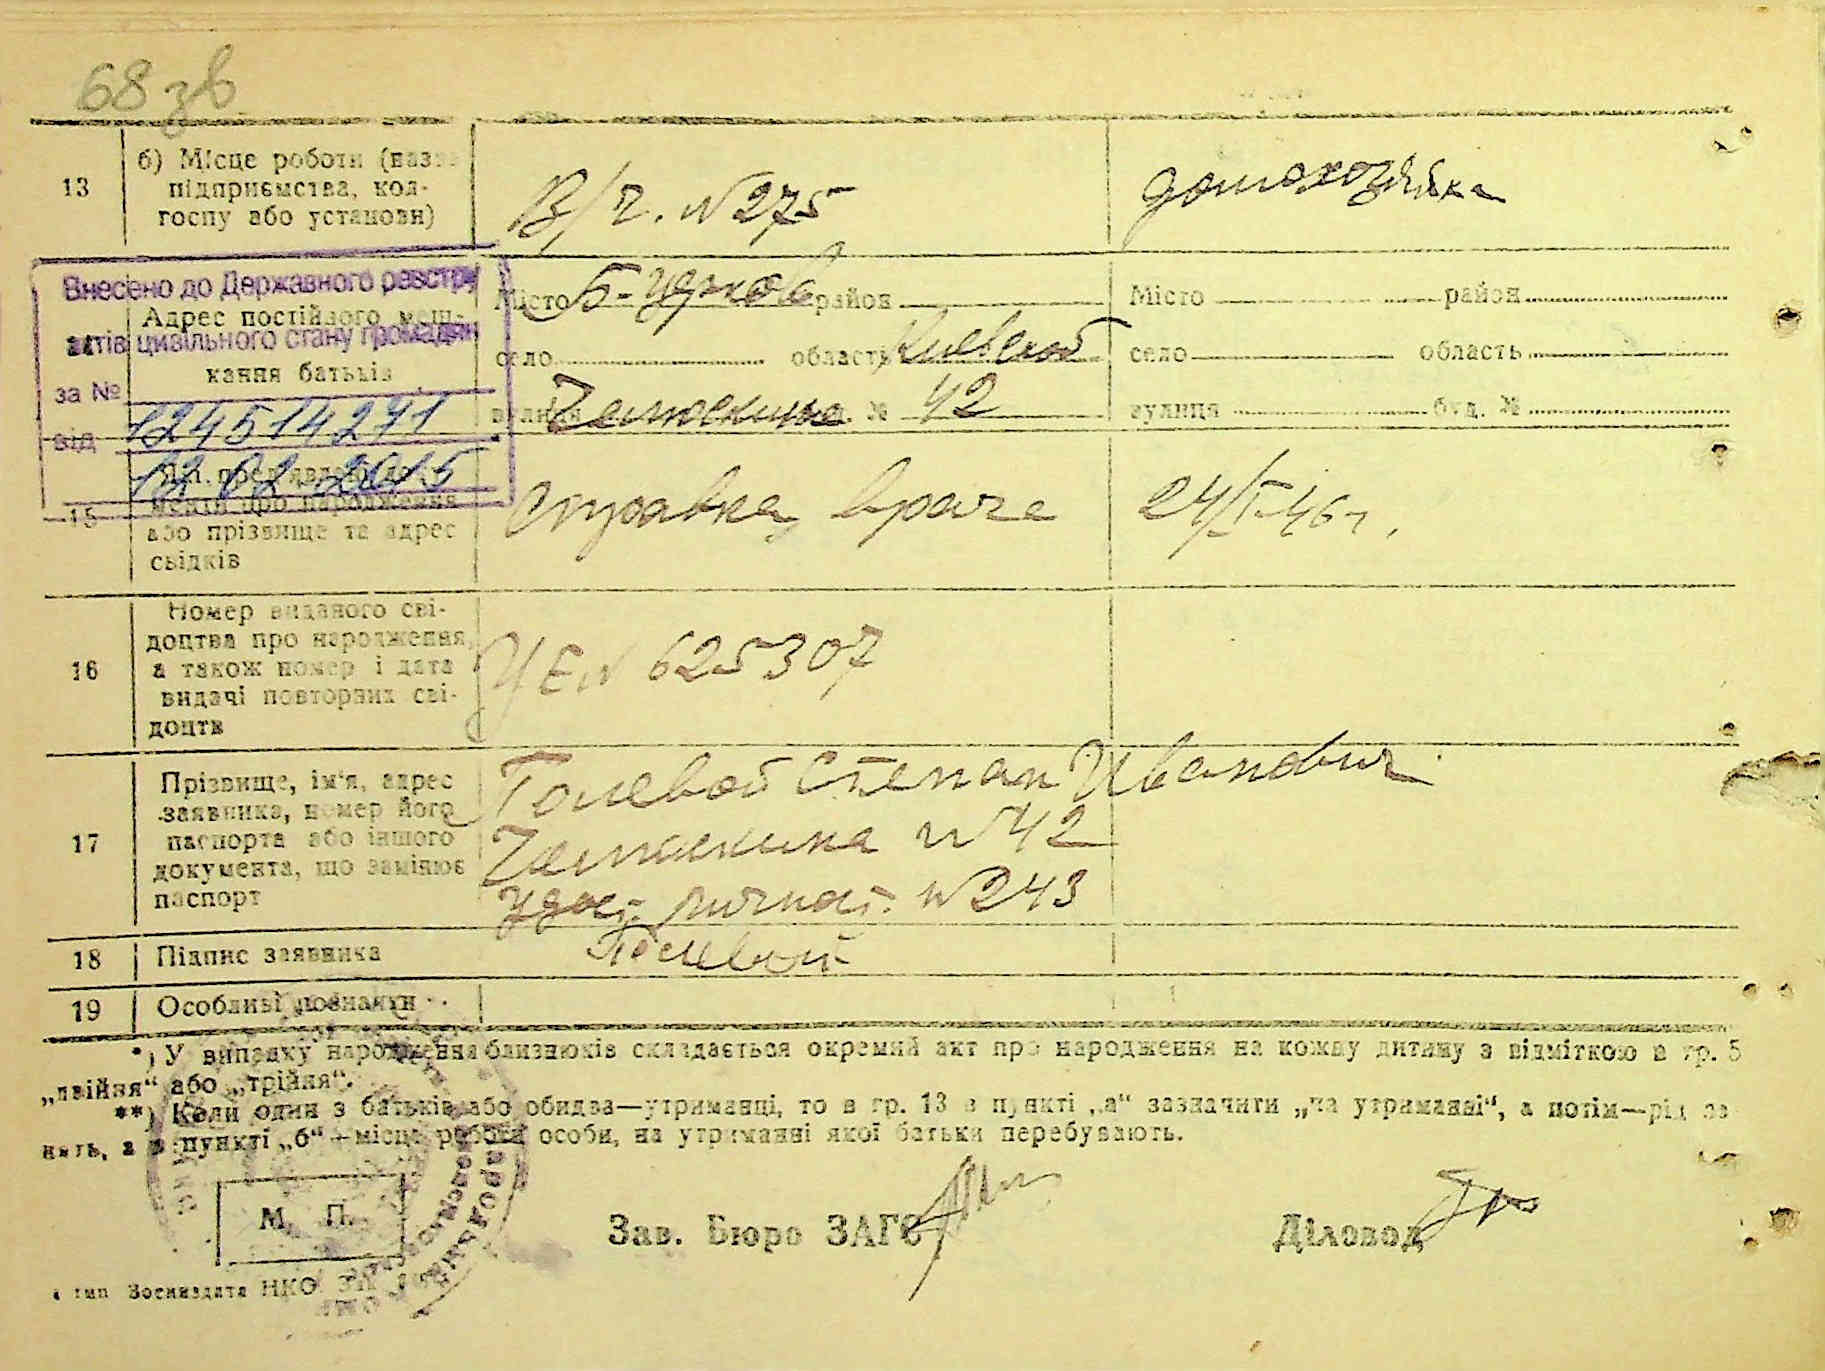 68 зв
13
б) Місце роботи (назва
підприємства, кол-
госпу або установи)
В/ч. №275
домохозяйка
Внесено до Державного реєстру
актів цивільного стану громадян
за № 124514271
від 12 02 2015
Адрес постійного меш-
кання батьків
Місто Б-Церков район
село область Киевской
вулиця Челюскина № 42
Місто район
село область
вулиця буд. №
15
менти про народження
або прізвище та адрес
свідків
Справка врача
24/I-46 г.
16
Номер виданого сві-
доцтва про народження,
а також номер і дата
видачі повторних сві-
доцтв
ЧЕ № 625307
17
Прізвище, ім'я, адрес
заявника, номер його
паспорта або іншого
документа, що замінює
паспорт
Голевой Степан Иванович
Челюскина №42
Удост. личност. №243
18
Підпис заявника
Голевой
19
Особливі познаки
*) У випадку народження близнюків складається окремий акт про народження на кожну дитину з відміткою в гр. 5
„двійня“ або „трійня“.
**) Коли один з батьків або обидва—утриманці, то в гр. 13 в пункті „а“ зазначити „на утриманні“, а потім—рід за-
нять, а в пункті „б“—місце роботи особи, на утриманні якої батьки перебувають.
М. П.
Зав. Бюро ЗАГС
Діловод